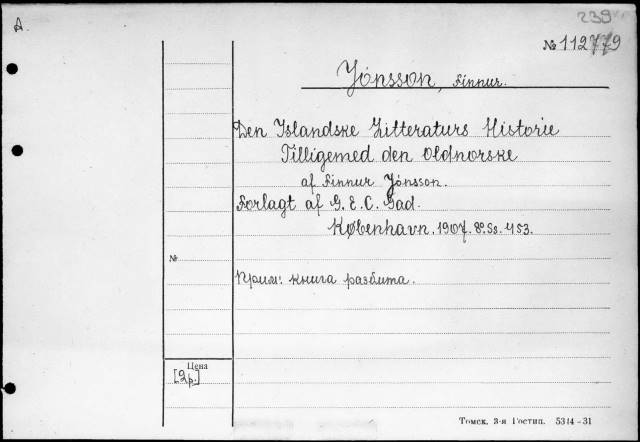 239
A
№ 112779
Jónsson, Finnur.
Den Islandske Litteraturs Historie
Tilligemed den Oldnorske
af Finnur Jónsson.
Forlagt af G. E. C. Gad.
København. 1907. 8°. Ss. 453.
№
Прим: книга разбита.
Цена
[2р.]
Томск. 3-я Гостип. 5314-31